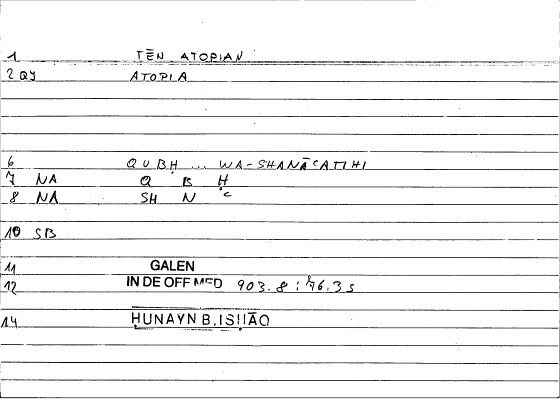 1 TĒN ATOPIAN
2 QY ATOPIA
6 QUBḤ ... WA-SHANĀCATIHI
7 NA Q B Ḥ
8 NA SH N C
10 SB
11 GALEN
12 IN DE OFF MED 903.8 : 76.35
14 ḤUNAYN B. ISḤĀQ